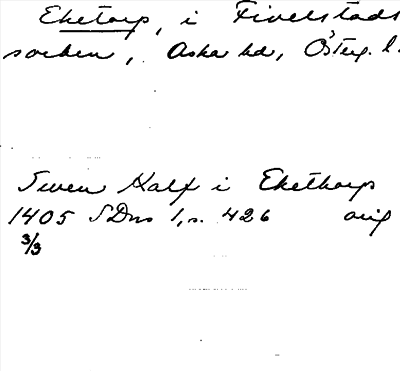 Eketorp, i Fivelstads
socken, Aska hd, Östeg. l.
Swen Kalf i Ekethorp
1405 SDns 1, s. 426 orig
3/3